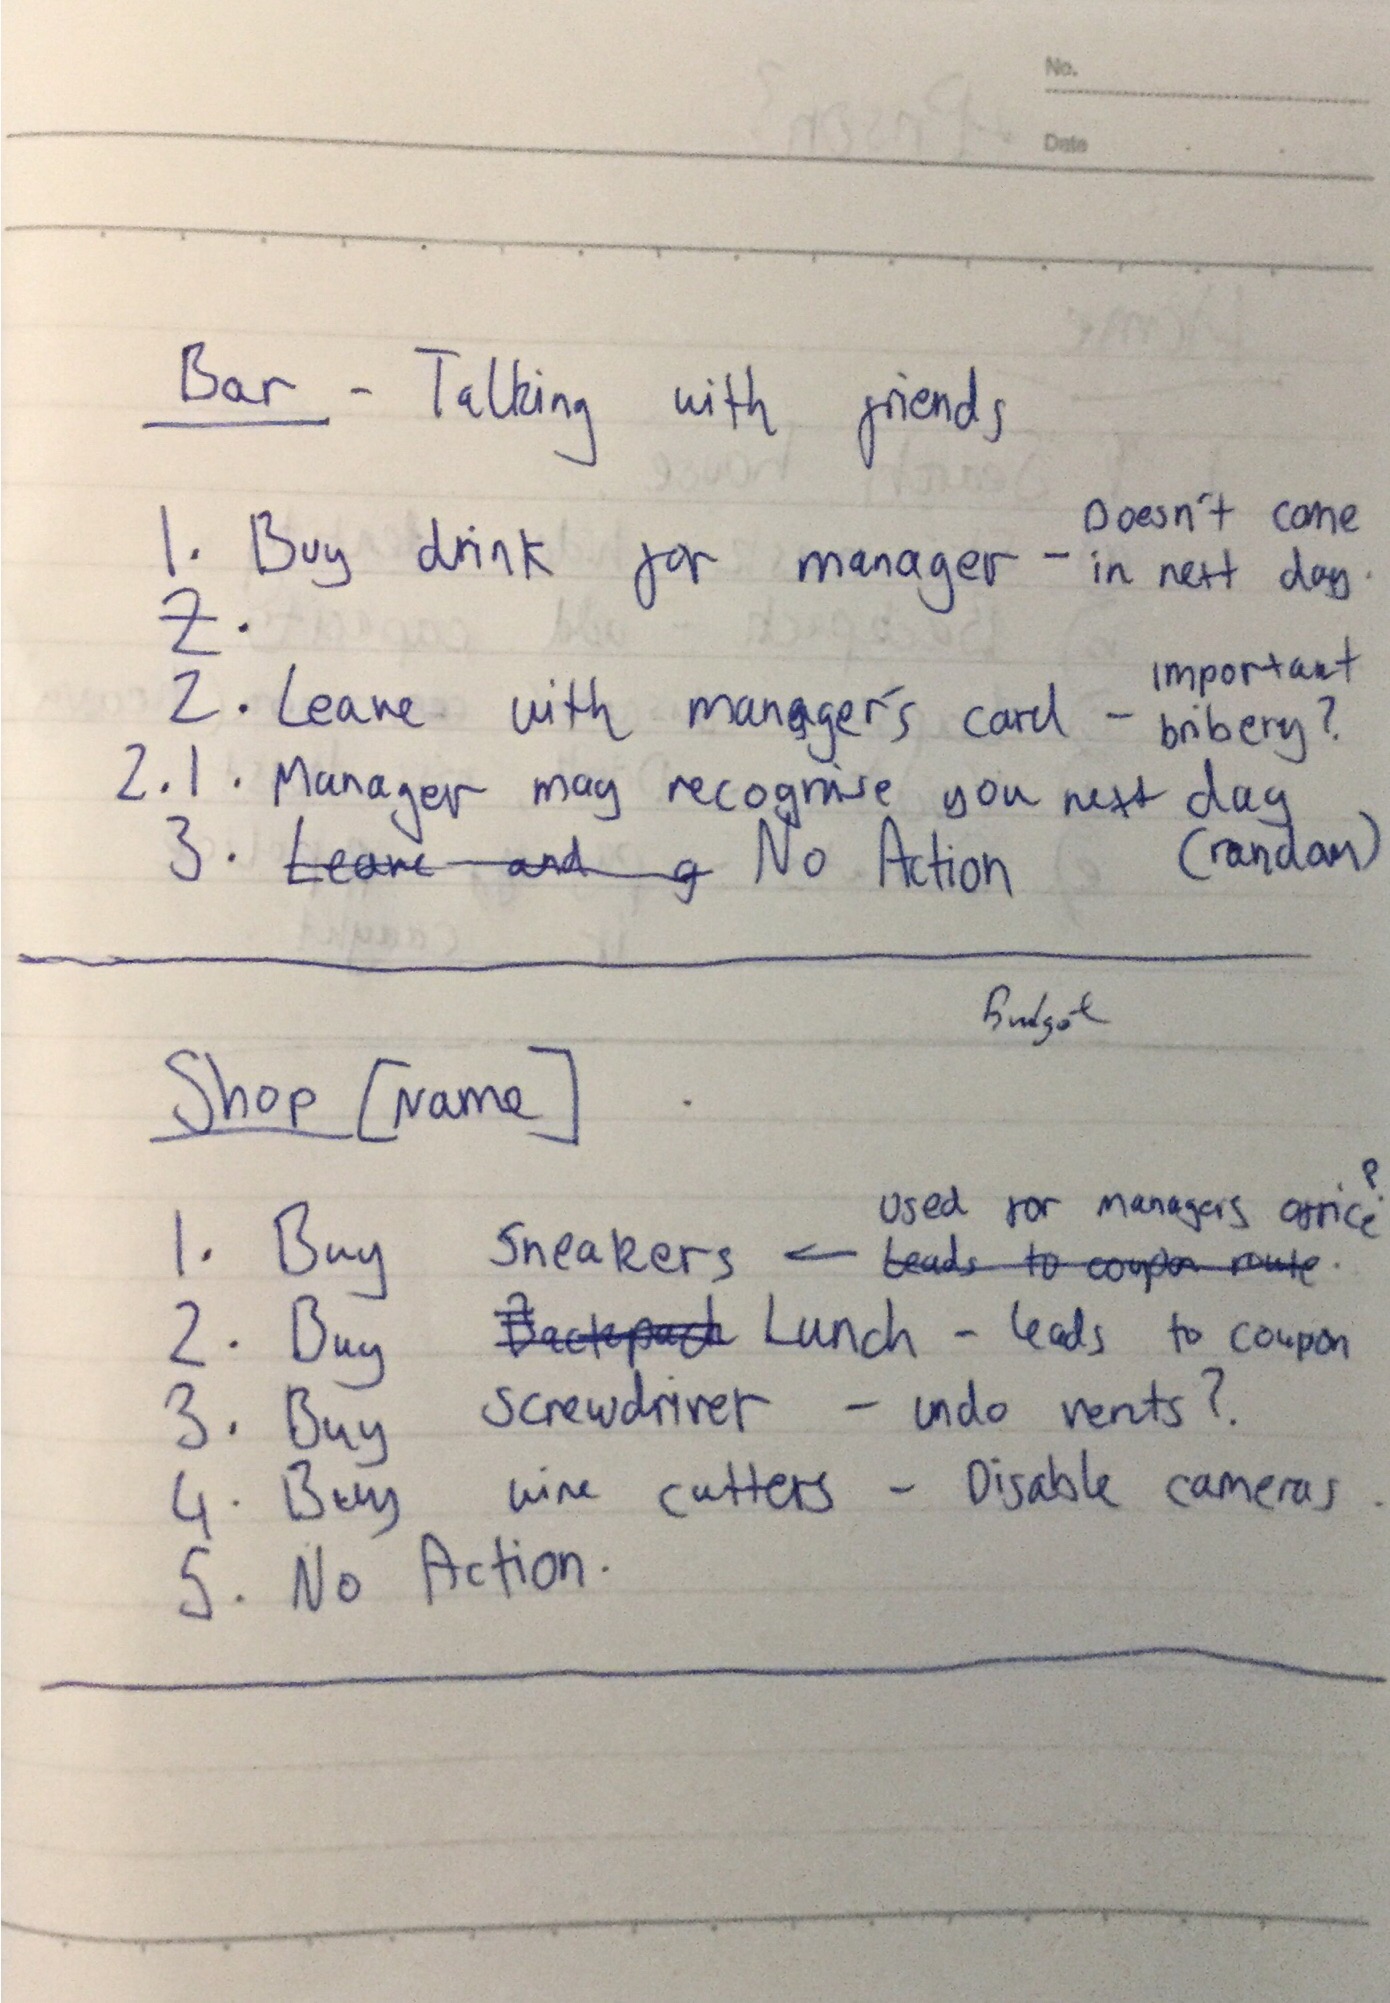 No.
Date
Bar - Talking with friends
1. Buy drink for manager - Doesn't come
in next day.
2.
2. Leave with manager's card - important
bribery?
2.1. Manager may recognise you next day
(random)
3. Leave and g No Action
Budget
Shop [Name]
1. Buy sneakers ← used for managers office?
Leads to coupon route.
2. Buy Backpack Lunch - leads to coupon
3. Buy screwdriver - undo vents?.
4. Buy wire cutters - Disable cameras.
5. No Action.